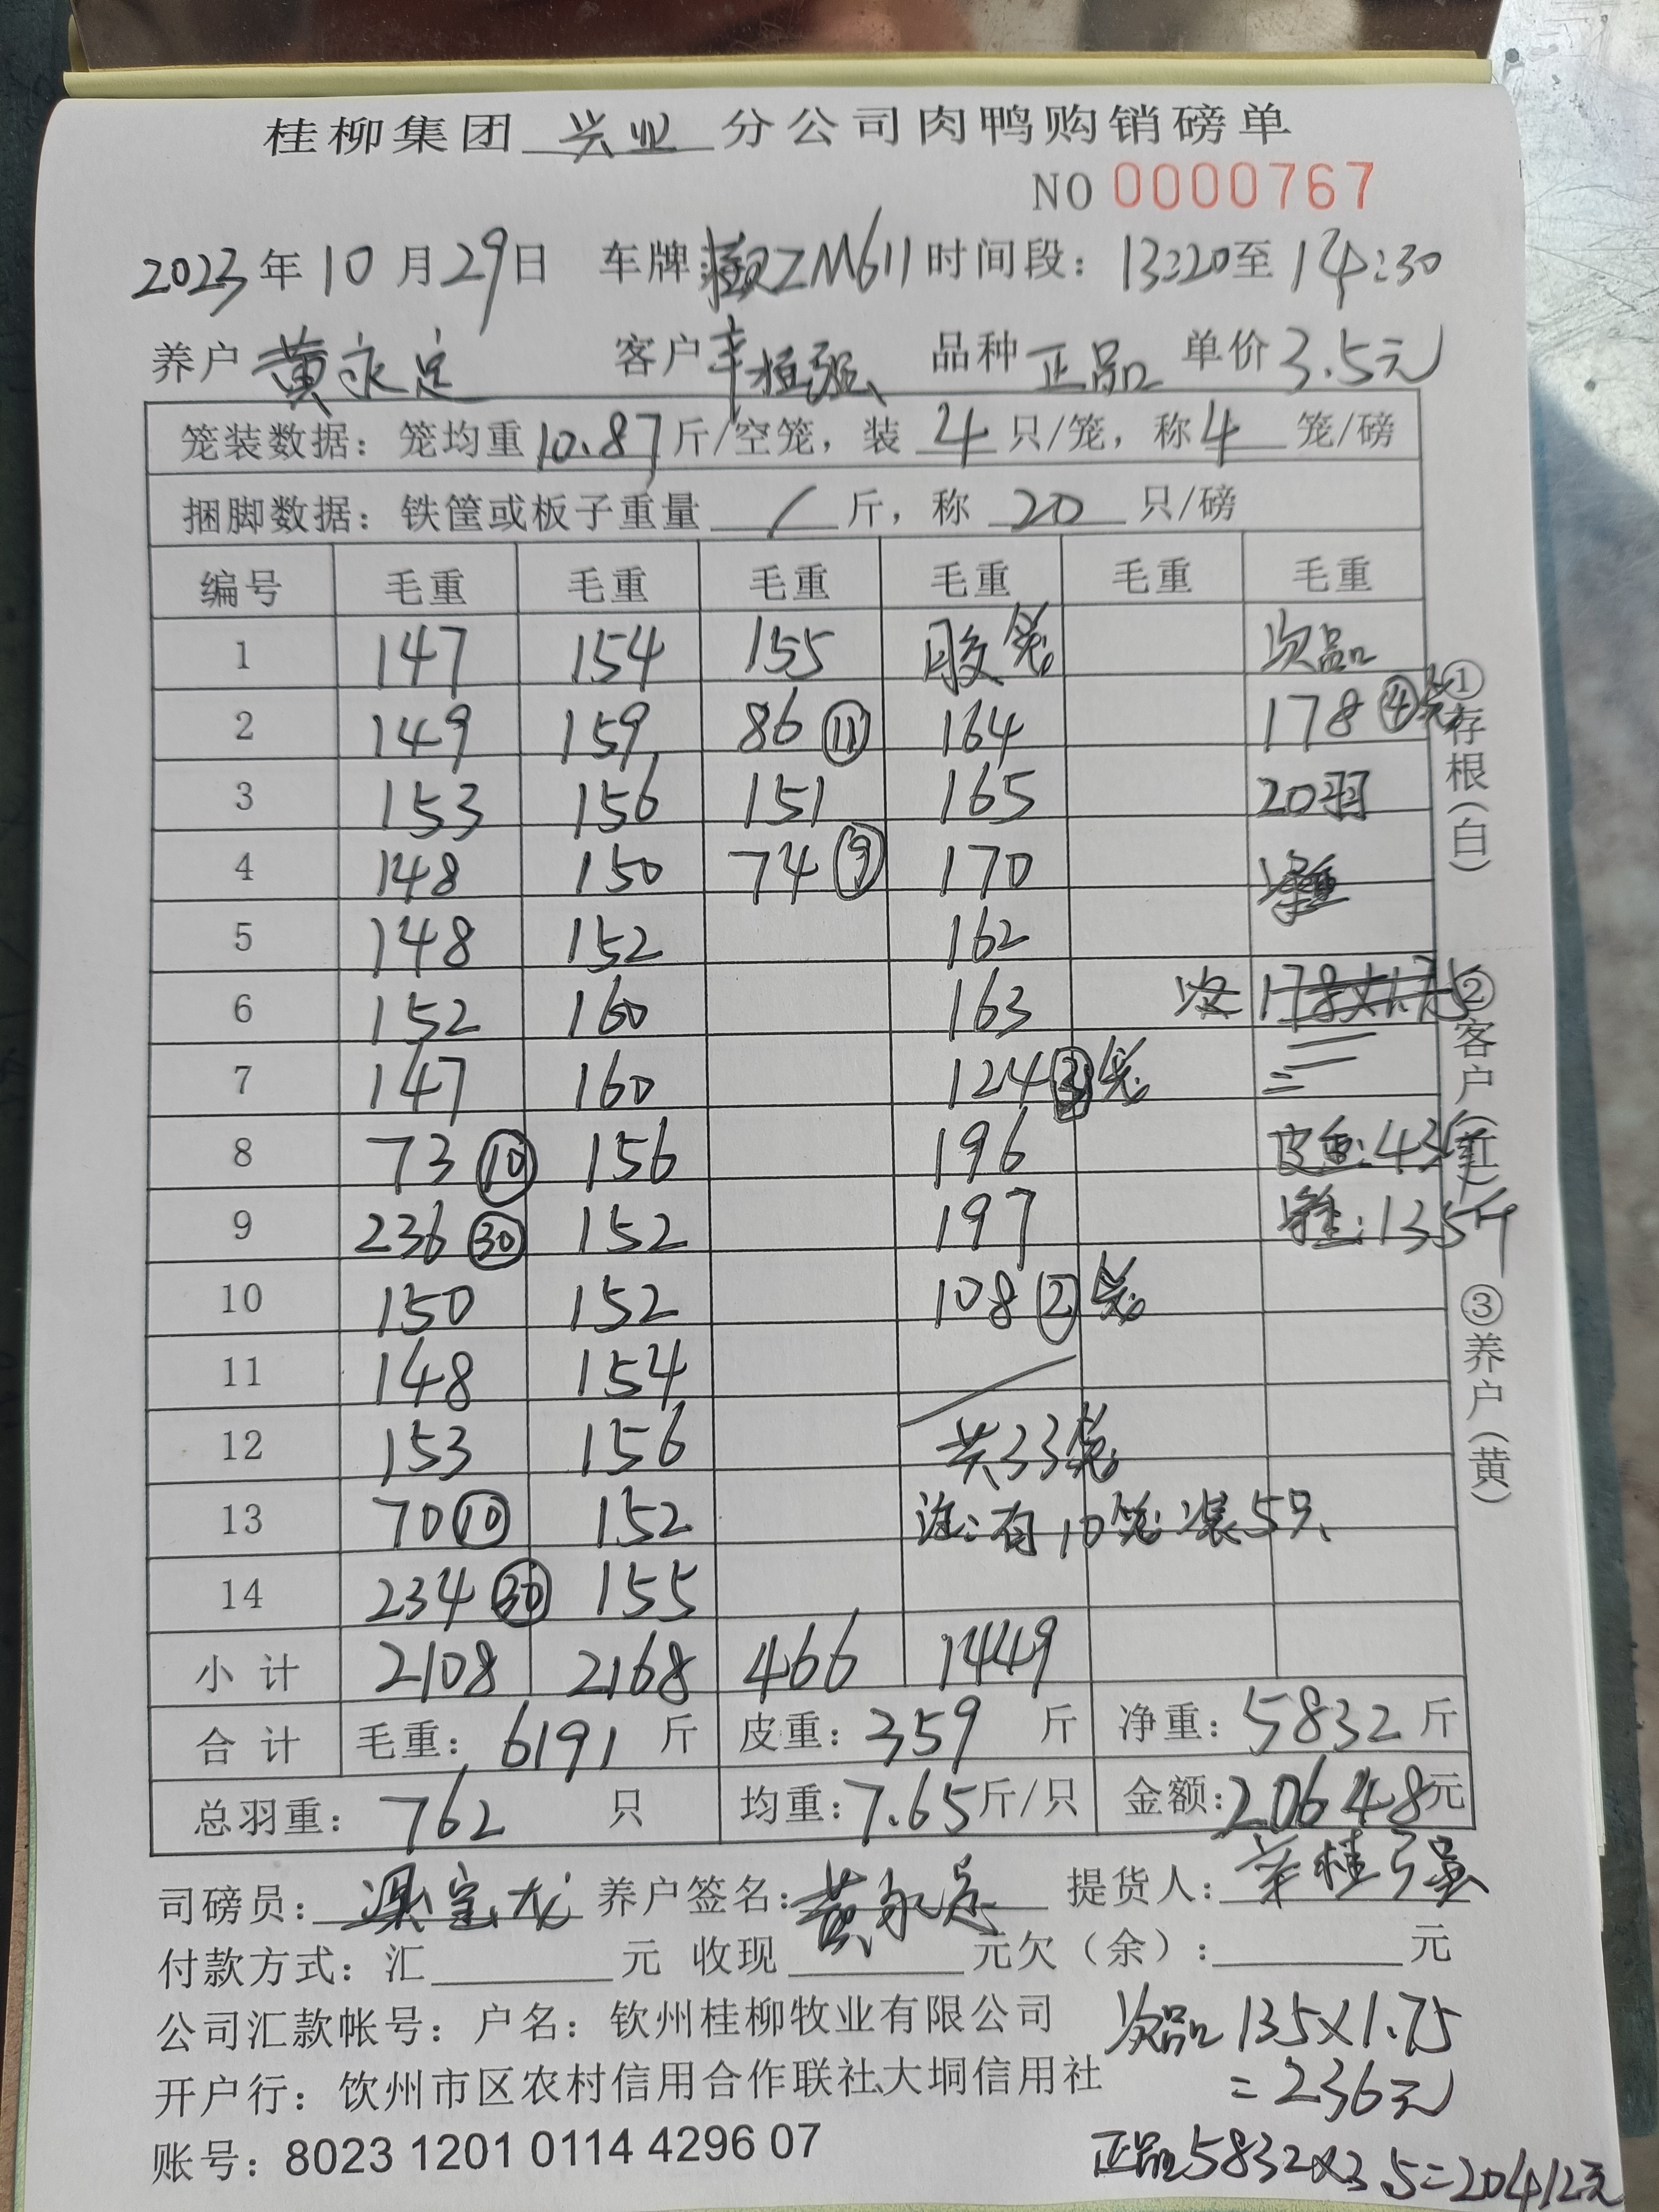 桂柳集团 兴业 分公司肉鸭购销磅单
NO 0000767
2023年10月29日 车牌 ZM611 时间段：13:20至14:30
养户 黄永定 客户 辛桂强 品种 正品 单价 3.5元
笼装数据：笼均重 10.87 斤/空笼，装 4 只/笼，称 4 笼/磅
捆脚数据：铁筐或板子重量 / 斤，称 20 只/磅
编号 毛重 毛重 毛重 毛重 毛重 毛重
1 147 154 155 胶笼 次品
2 149 159 86 ⑪ 164 178 ④笼
3 153 156 151 165 20羽
4 148 150 74 ⑨ 170
5 148 152 162
6 152 160 163 178×1.75
7 147 160 124 ③笼 =
8 73 ⑩ 156 196 皮重：43斤
9 236 ㉚ 152 197 净重：135斤
10 150 152 108 ② 笼
11 148 154
12 153 156 共33笼
13 70 ⑩ 152 注：有10笼装5只
14 234 ㉚ 155
小计 2108 2168 466 1449
合计 毛重：6191 斤 皮重：359 斤 净重：5832 斤
总羽重：762 只 均重：7.65斤/只 金额：20648元
司磅员： 宝龙 养户签名：黄永定 提货人：辛桂强
付款方式：汇 元 收现 元欠（余）： 元
公司汇款帐号：户名：钦州桂柳牧业有限公司
开户行：钦州市区农村信用合作联社、大垌信用社
账号：8023 1201 0114 4296 07
次品 135×1.75
=236元
正品5832×3.5=20412元
①存根（白） ②客户（红） ③养户（黄）